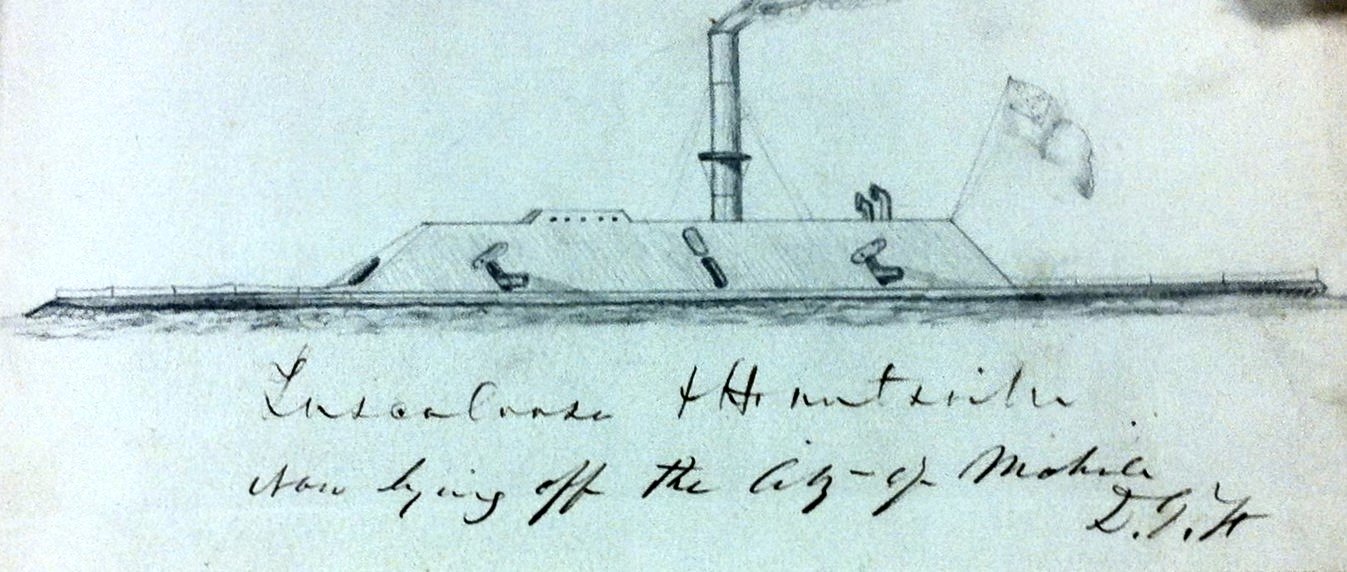 Tuscaloosa & Huntsville
Now lying off the City of Mobile
D.T.H